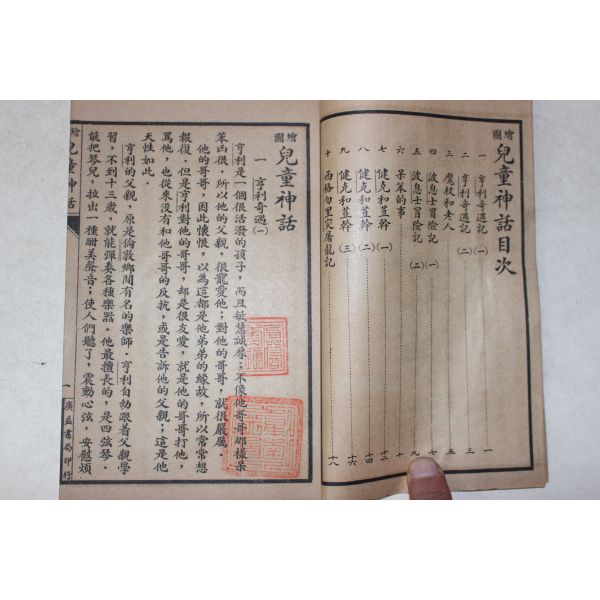 繪圖兒童神話目次
一 亨利奇遇記(一) 一
二 亨利奇遇記(二) 三
三 魔杖和老人 五
四 波息士冒險記(一) 七
五 波息士冒險記(二) 九
六 呆笨的事 十
七 健克和荳幹(一) 十二
八 健克和荳幹(二) 十四
九 健克和荳幹(三) 十六
十 西格勿里突屠龍記 十八
繪圖兒童神話
一 亨利奇遇(一)
亨利是一個很活潑的孩子，而且敏慧誠厚；不像他哥哥那樣呆
笨凶很．所以他的父親，很寵愛他；對他的哥哥，就很嚴厲．
他的哥哥，因此懷恨，以為這都是他弟弟的緣故，所以常常想
報復．但是亨利對他的哥哥，却是很友愛，就是他的哥哥打他，
罵他，也從來沒有和他哥哥的反抗，或是告訴他的父親；這是他
天性如此．
亨利的父親，原是倫敦鄉間有名的樂師．亨利自幼跟着父親學
習，不到十三歲，就能彈奏各種樂器．他最擅長的，是四弦琴．
能把琴兒，拉出一種酣美聲音；使人們聽了，震動心弦，安慰煩
繪圖兒童神話
一
廣益書局印行